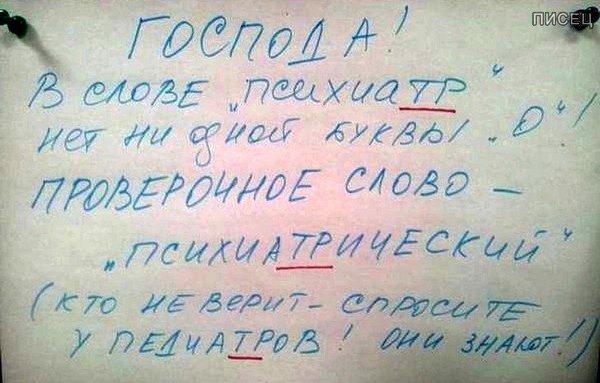 ПИСЕЦ
ГОСПОДА!
В СЛОВЕ „ПСИХИАТР"
НЕТ НИ ОДНОЙ БУКВЫ „О"!
ПРОВЕРОЧНОЕ СЛОВО –
„ПСИХИАТРИЧЕСКИЙ"
(КТО НЕ ВЕРИТ – СПРОСИТЕ
У ПЕДИАТРОВ! ОНИ ЗНАЮТ!)